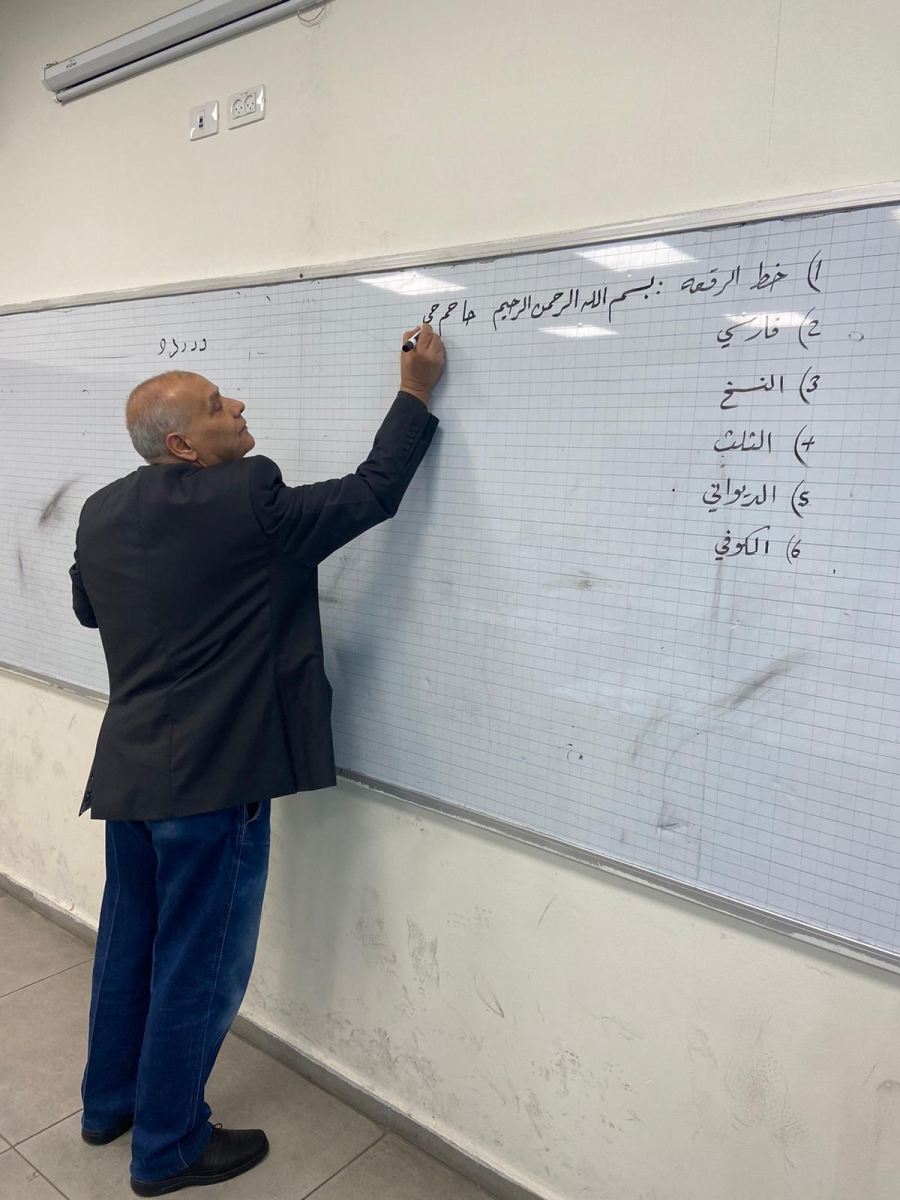 1) خط الرقعه : بسم الله الرحمن الرحيم حا حم حي
2) فارسي
3) النسخ
4) الثلث
5) الديواني
6) الكوفي